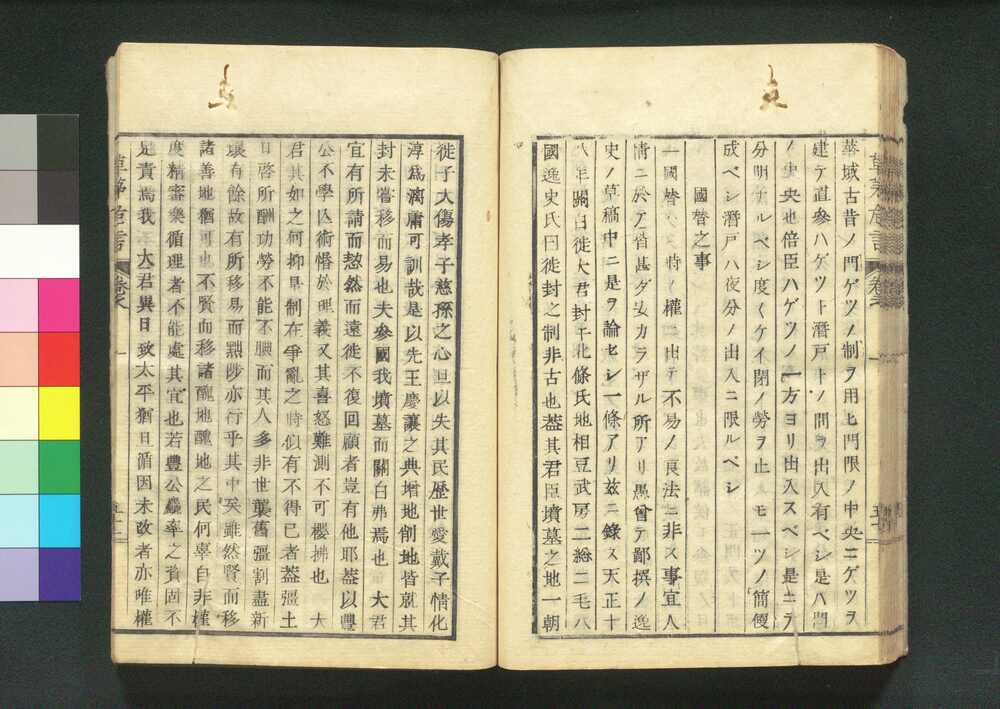 華域古昔ノ門ゲツノ制ヲ用ヒ門限ノ中央ニゲツヲ
建テ直參ハゲツト潛戸トノ間ヲ出入有ベシ是ハ門
ノ中央也倍臣ハゲツノ一方ヨリ出入スベシ是ニテ
分明ナルベシ度〱ケイ閉ノ勞ヲ止スモ一ツノ簡便
成ベシ潛戸ハ夜分ノ出入ニ限ルベシ
國替之事
一國替ハ一時ノ權ニ出テ不易ノ良法ニ非ス事宜人
情ニ於テ皆甚ダ安カラザル所アリ愚曾テ鄙撰ノ逸
史ノ草稿中ニ是ヲ論セシ一條アリ茲ニ錄ス天正十
八年關白徙大君封于北條氏地相豆武房二總二毛八
國逸史氏曰徙封之制非古也葢其君臣墳墓之地一朝
徙子大傷孝子慈孫之心且以失其民歷世愛戴子情化
淳爲漓庸可訓哉是以先王慶讓之典增地削地皆就其
封未嘗移而易也夫參國我墳墓而關白弗焉也 大君
宜有所請而愸然而遠徙不復回顧者豈有他耶葢以豐
公不學仄術惛於理義又其喜怒難測不可櫻拂也 大
君其如之何抑早制在爭亂之時似有不得已者葢彊土
日啓所酬功勞不能不腆而其人多非世業舊彊割盡新
壤有餘故有所移易而黜陟亦行乎其中矣雖然賢而移
諸善地猶可也不賢而移諸醜地醜地之民何辜自非權
度精審樂循理者不能處其宜也若豐公麤率之資固不
足責焉我 大君異日致太平猶日循因未改者亦唯權
草茅危言